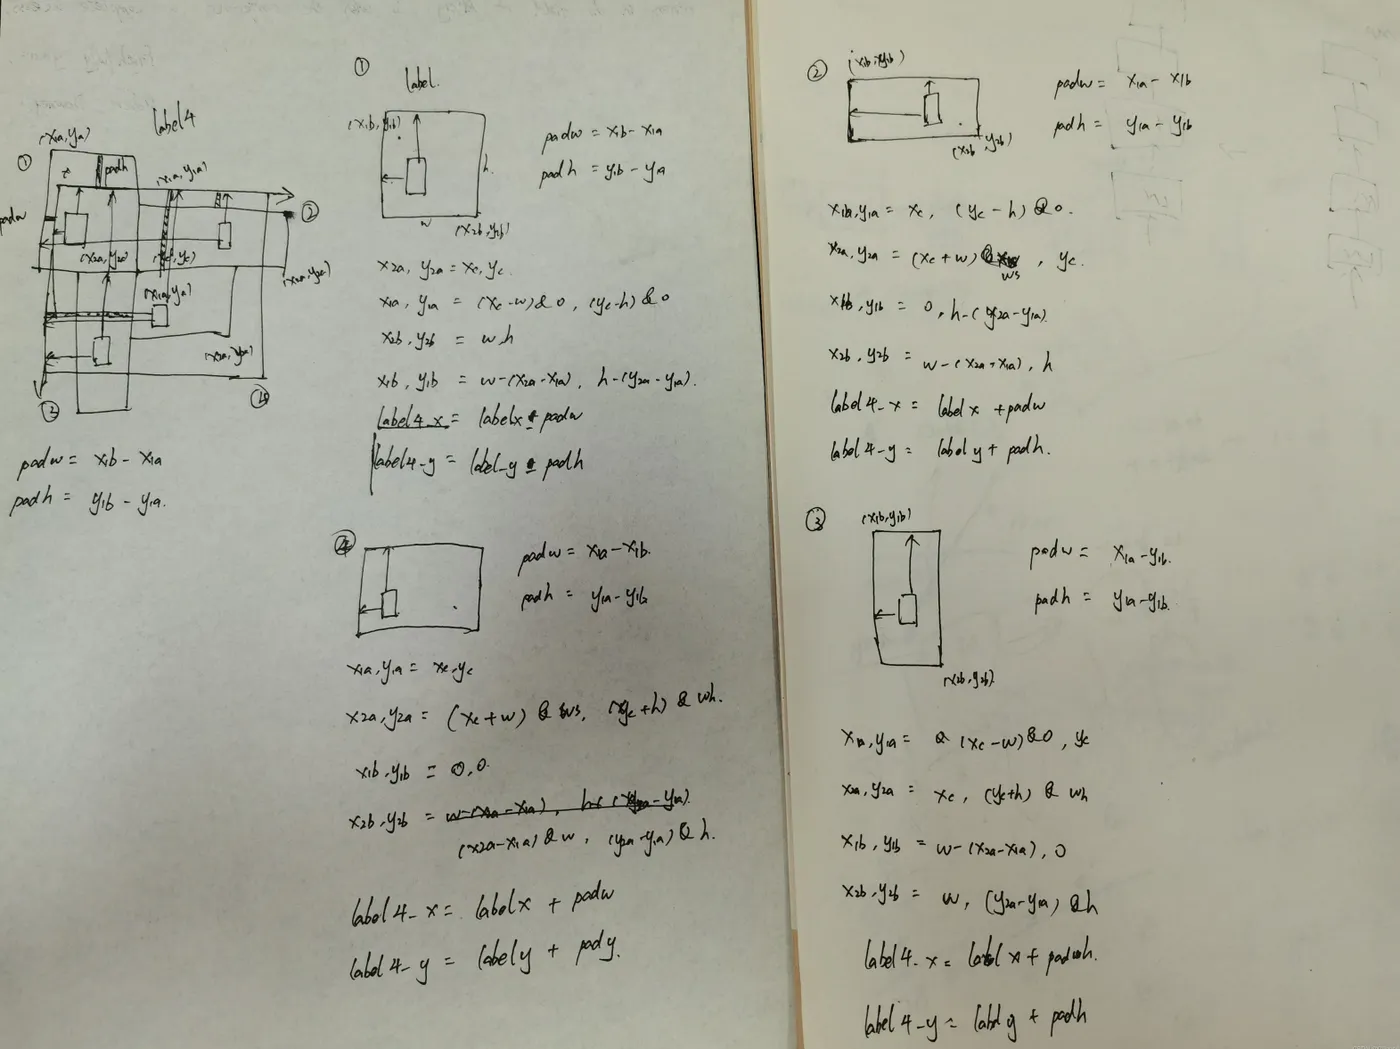 label4
(x1a, ya)
①
padh
(x1a, y1a)
padw
②
(x2a, y2a)
(xc, yc)
(x2a, y2a)
(x1a, y1a)
(x2a, y2a)
③
④
padw = x1b - x1a
padh = y1b - y1a.
①
label.
(x1b, y1b)
h.
w
(x2b, y2b)
padw = x1b - x1a
padh = y1b - y1a
x2a, y2a = xc, yc.
x1a, y1a = (xc-w)&0, (yc-h)&0
x2b, y2b = w,h
x1b, y1b = w-(x2a-x1a), h-(y2a-y1a).
label4_x = labelx padw
label4-y = label-y padh
④
padw = x1a - x1b.
padh = y1a - y1b
x1a, y1a = xc, yc
x2a, y2a = (xc+w) & ws, (yc+h) & wh.
x1b, y1b = 0,0.
x2b, y2b = w-(x2a-x1a), h-(y2a-y1a).
(x2a-x1a)&w, (y2a-y1a)&h.
label4-x = labelx + padw
label4-y = labely + pady.
②
(x1b, y1b)
(x2b, y2b)
padw = x1a - x1b
padh = y1a - y1b
x1a, y1a = xc, (yc-h)&0.
x2a, y2a = (xc+w)& ws, yc
x1b, y1b = 0, h-(y2a-y1a)
x2b, y2b = w-(x2a+x1a), h
label4-x = labelx + padw
label4-y = labely + padh.
③
(x1b, y1b)
(x2b, y2b)
padw = x1a - y1b.
padh = y1a - y1b.
x1a, y1a = (xc-w)&0, yc
x2a, y2a = xc, (yc+h) & wh
x1b, y1b = w-(x2a-x1a), 0
x2b, y2b = w, (y2a-y1a) & h
label4-x = label x + padwh.
label4-y = label y + padh